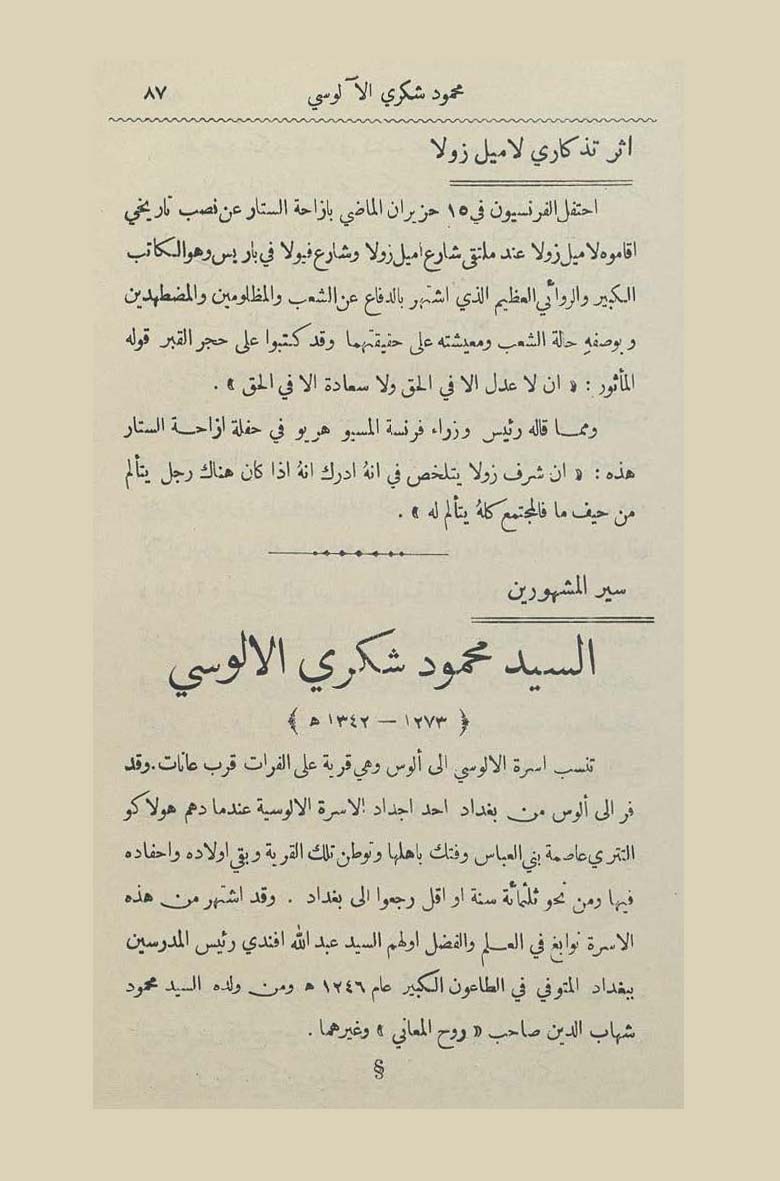 محمود شكري الآلوسي ٨٧
اثر تذكاري لاميل زولا
احتفل الفرنسيون في ١٥ حزيران الماضي بازاحة الستار عن نصب تاريخي
اقاموه لاميل زولا عند ملتقى شارع اميل زولا وشارع فيولا في باريس وهو الكاتب
الكبير والروائي العظيم الذي اشتهر بالدفاع عن الشعب والمظلومين والمضطهدين
وبوصفهِ حالة الشعب ومعيشته على حقيقتهما وقد كتبوا على حجر القبر قوله
المأثور : « ان لا عدل الا في الحق ولا سعادة الا في الحق » .
ومما قاله رئيس وزراء فرنسة المسيو هريو في حفلة ازاحة الستار
هذه : « ان شرف زولا يتلخص في انهُ ادرك انهُ اذا كان هناك رجل يتألم
من حيف ما فالمجتمع كلهُ يتألم له » .
سير المشهورين
السيد محمود شكري الالوسي
﴿ ١٢٧٣ – ١٣٤٢ ه ﴾
تنسب اسرة الالوسي الى ألوس وهي قرية على الفرات قرب عانات . وقد
فر الى ألوس من بغداد احد اجداد الاسرة الالوسية عندما دهم هولاكو
التتري عاصمة بني العباس وفتك باهلها وتوطن تلك القرية وبقي اولاده واحفاده
فيها ومن نحو ثلثمائة سنة او اقل رجعوا الى بغداد . وقد اشتهر من هذه
الاسرة نوابغ في العلم والفضل اولهم السيد عبد الله افندي رئيس المدرسين
ببغداد المتوفي في الطاعون الكبير عام ١٢٤٦ ه ومن ولده السيد محمود
شهاب الدين صاحب « روح المعاني » وغيرهما .
§